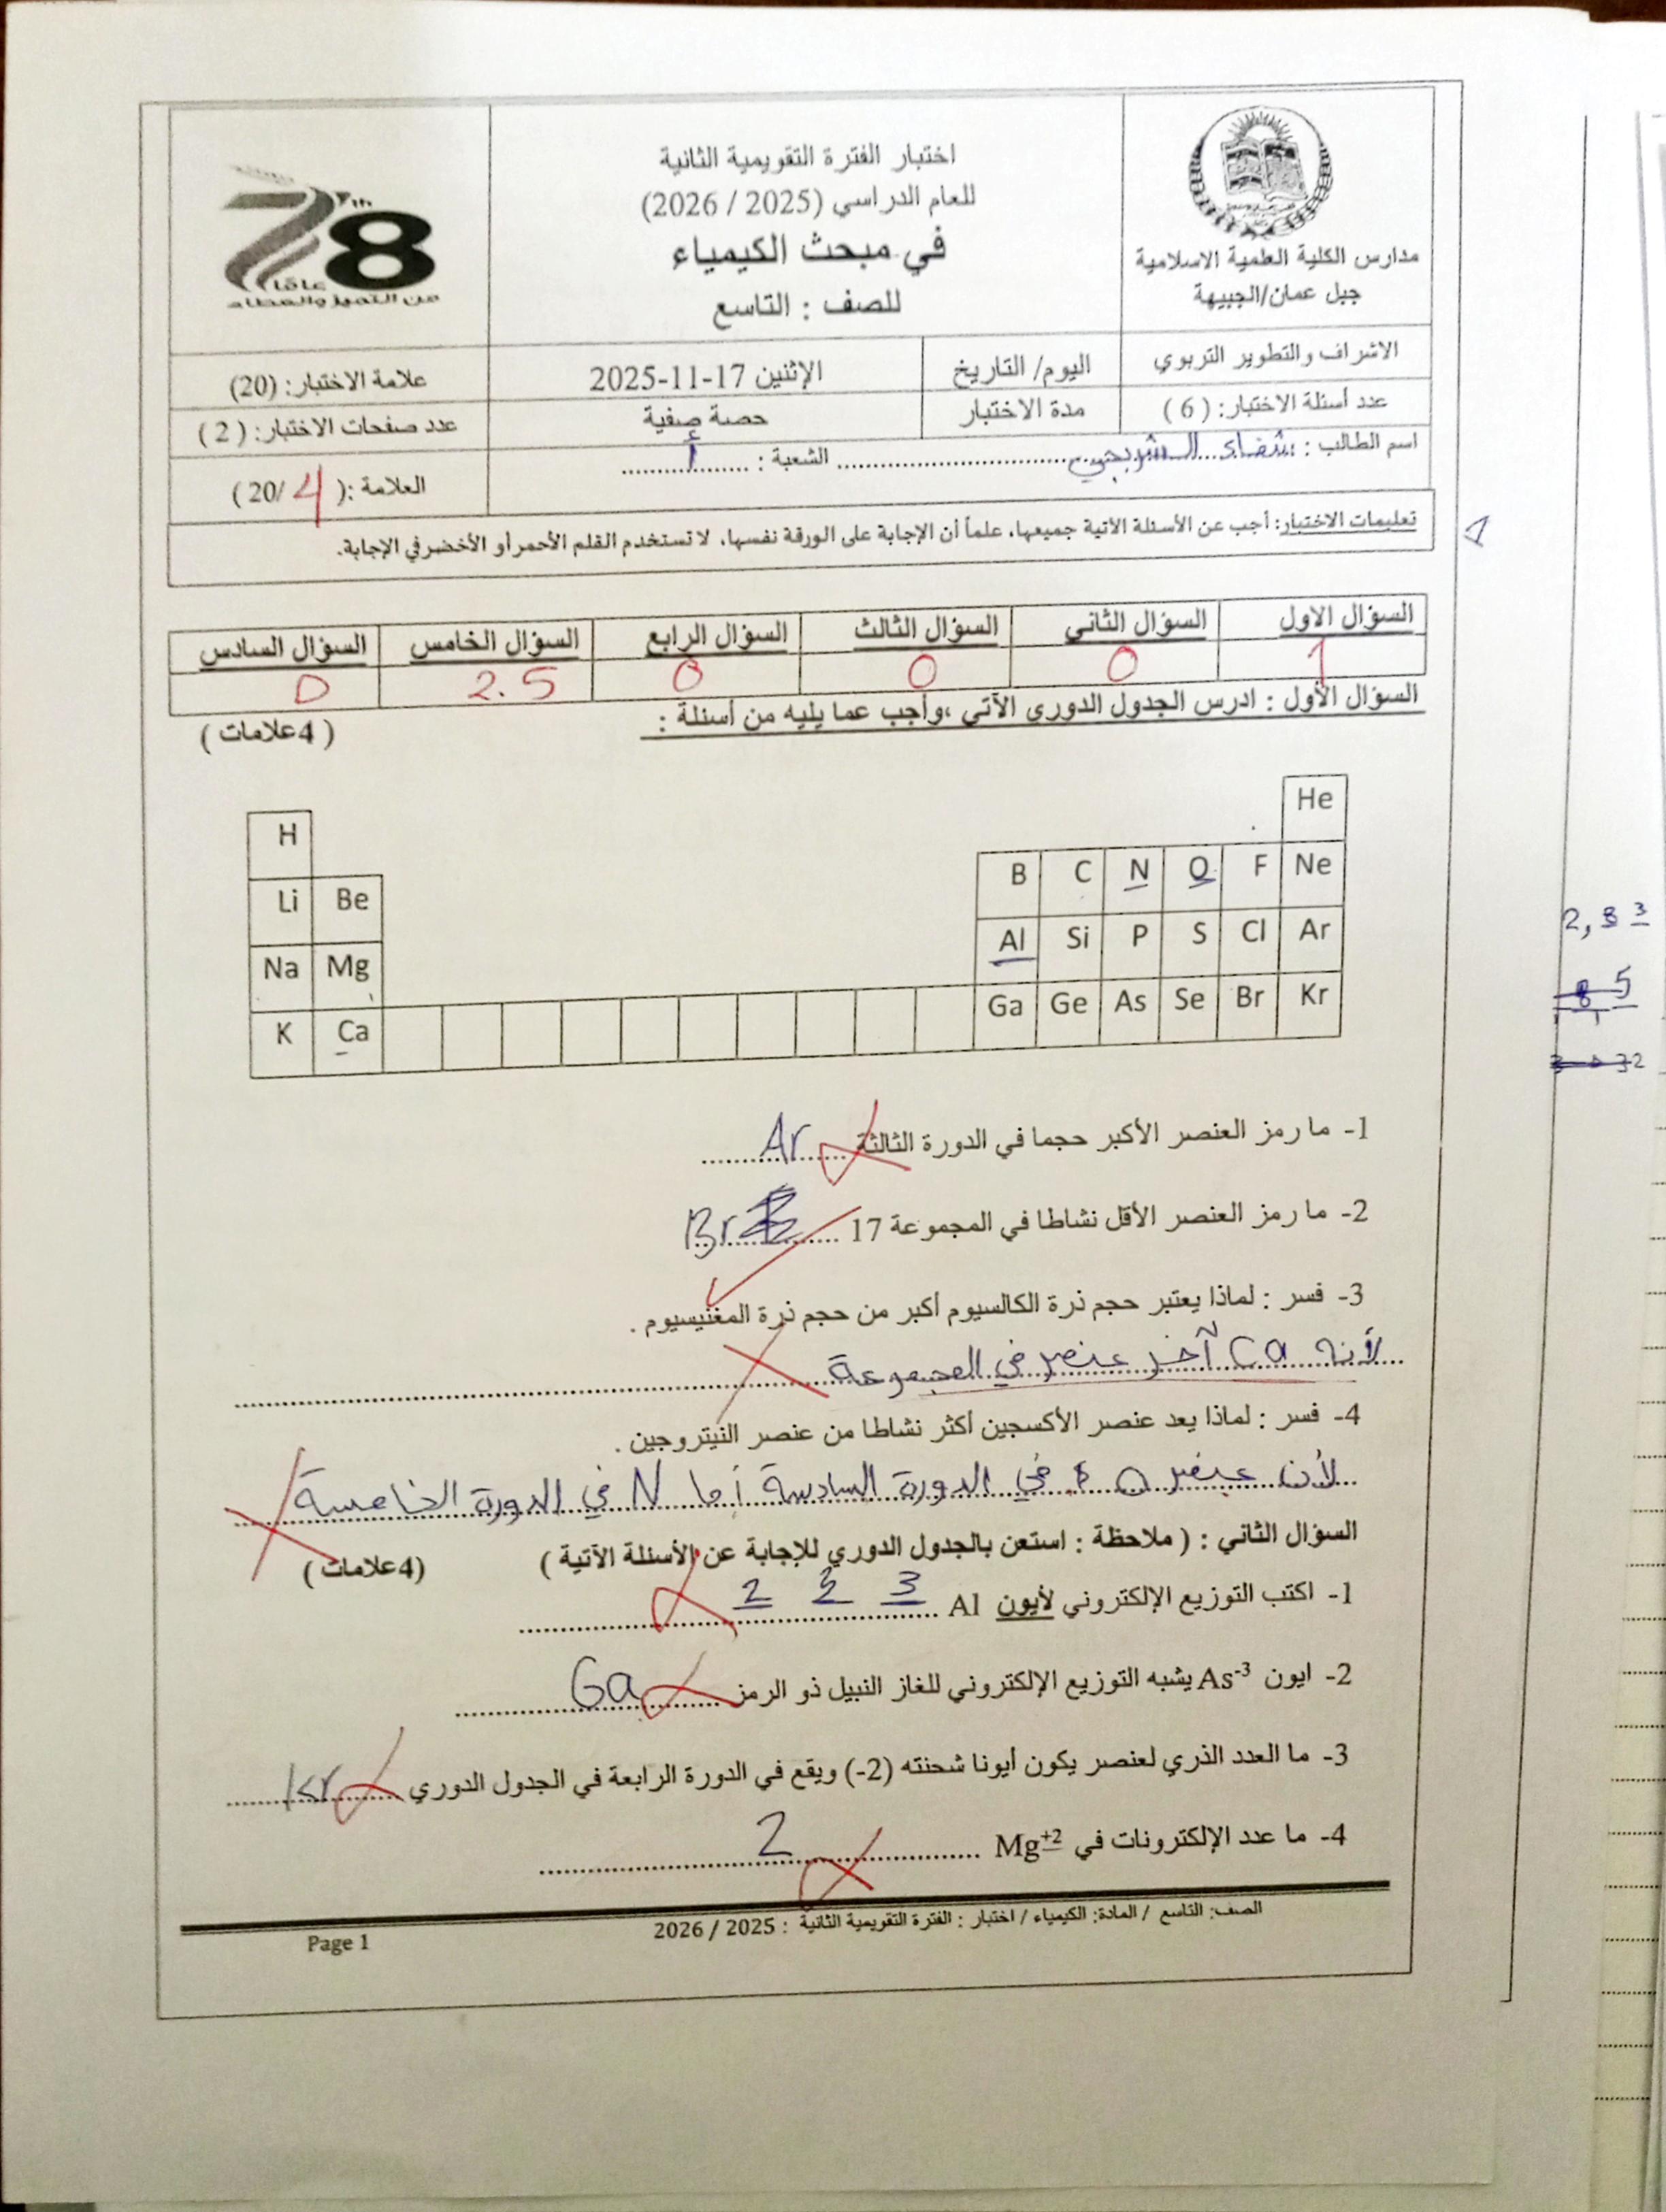 مدارس الكلية العلمية الاسلامية
جبل عمان/الجبيهة
اختبار الفترة التقويمية الثانية
للعام الدراسي (2025 / 2026)
في مبحث الكيمياء
للصف : التاسع
78
عامًا
من التميز والعطاء
الاشراف والتطوير التربوي
اليوم/ التاريخ
الإثنين 17-11-2025
علامة الاختبار: (20)
عدد أسئلة الاختبار: ( 6 )
مدة الاختبار
حصة صفية
عدد صفحات الاختبار: ( 2 )
اسم الطالب : الشعبة : أ
العلامة :( 4 /20 )
تعليمات الاختبار: أجب عن الأسئلة الآتية جميعها، علماً أن الإجابة على الورقة نفسها، لا تستخدم القلم الأحمر أو الأخضر في الإجابة.
السؤال الاول السؤال الثاني السؤال الثالث السؤال الرابع السؤال الخامس السؤال السادس
1 0 0 0 2.5 0
السؤال الأول : ادرس الجدول الدوري الآتي ،وأجب عما يليه من أسئلة :
( 4علامات )
He
H
B C N O F Ne
Li Be
Al Si P S Cl Ar
Na Mg
Ga Ge As Se Br Kr
K Ca
1- ما رمز العنصر الأكبر حجما في الدورة الثالثة Ar
2- ما رمز العنصر الأقل نشاطا في المجموعة 17 Br
3- فسر : لماذا يعتبر حجم ذرة الكالسيوم أكبر من حجم ذرة المغنيسيوم .
لأنه Ca آخر عنصر في المجموعة
4- فسر : لماذا يعد عنصر الأكسجين أكثر نشاطا من عنصر النيتروجين .
لأن عنصر O في الدورة السادسة أما N في الدورة الخامسة
السؤال الثاني : ( ملاحظة : استعن بالجدول الدوري للإجابة عن الأسئلة الآتية )
(4علامات )
1- اكتب التوزيع الإلكتروني لأيون Al 2 2 3
2- ايون As-3 يشبه التوزيع الإلكتروني للغاز النبيل ذو الرمز Ga
3- ما العدد الذري لعنصر يكون أيونا شحنته (2-) ويقع في الدورة الرابعة في الجدول الدوري Kr
4- ما عدد الإلكترونات في Mg+2 2
الصف: التاسع / المادة: الكيمياء / اختبار : الفترة التقويمية الثانية : 2025 / 2026
Page 1